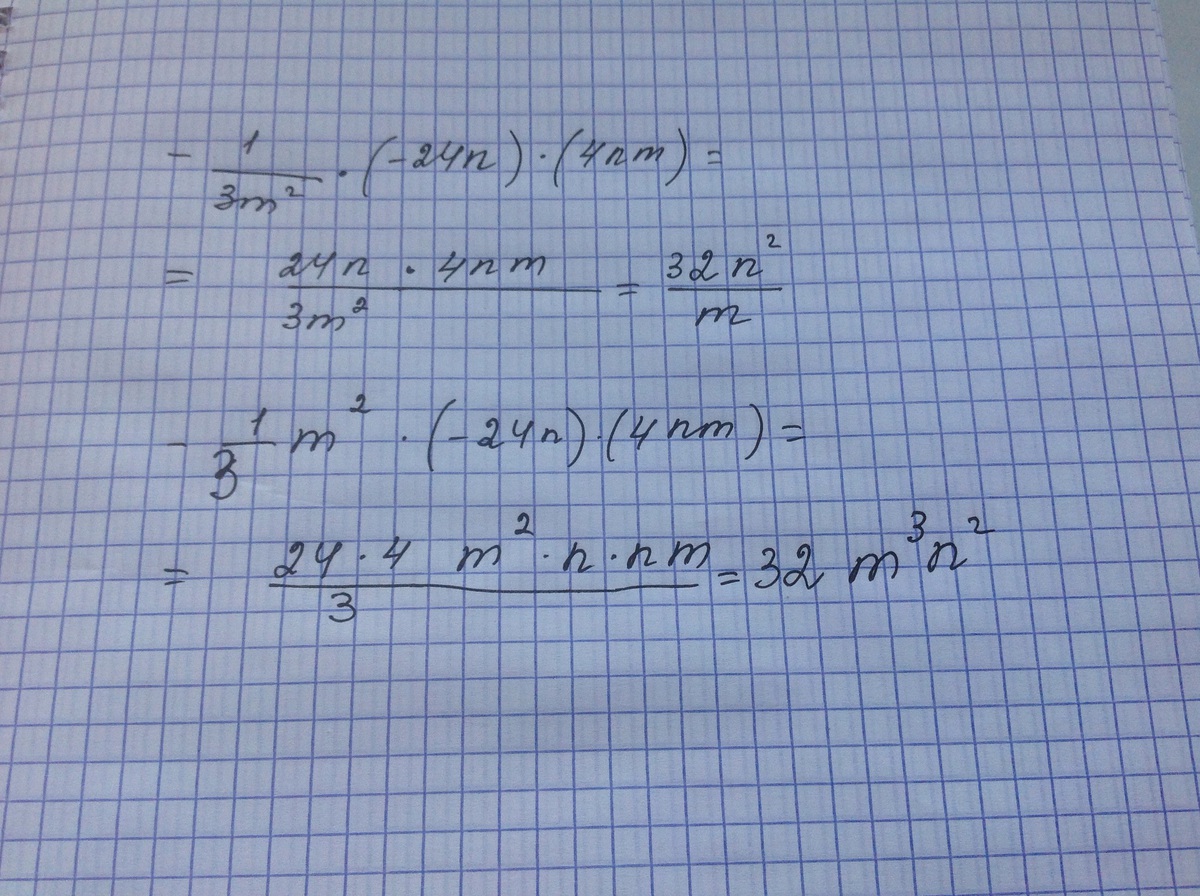 - 1/3m² · (-24n) · (4nm) =
= 24n · 4nm/3m² = 32n²/m
- 1/3 m² · (-24n) · (4nm) =
= 24·4 m²·n·nm/3 = 32 m³n²